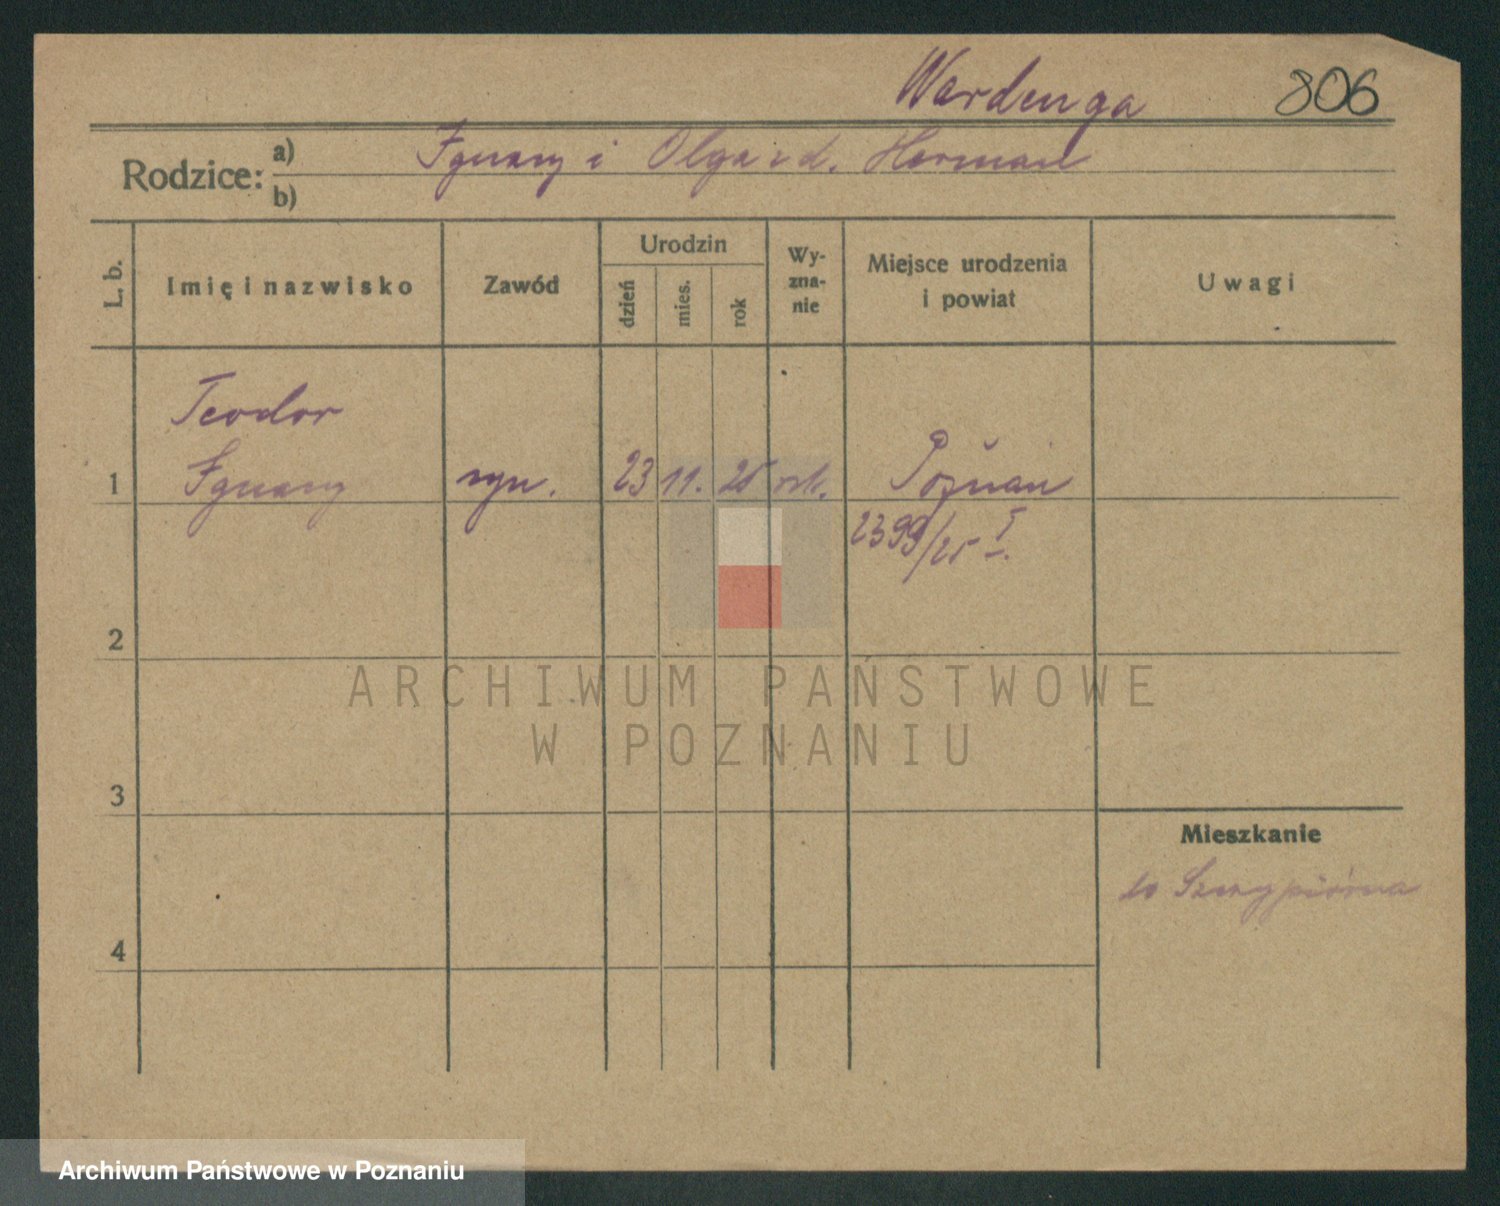 Wardenga 806
Rodzice: a) Ignacy i Olga z d. Herman
b)
L. b. Imię i nazwisko Zawód Urodzin dzień mies. rok Wy-zna-nie Miejsce urodzenia i powiat Uwagi
Teodor
1 Ignacy syn. 23 11. 25 rk. Poznań
2399/25 I.
2
ARCHIWUM PAŃSTWOWE
W POZNANIU
3
Mieszkanie
do Szczypiorna
4
Archiwum Państwowe w Poznaniu